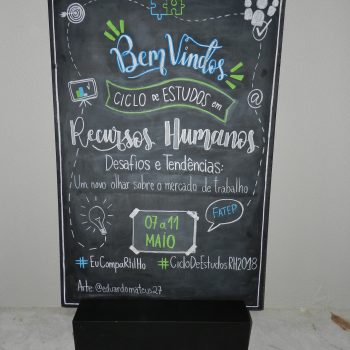 Bem Vindos
CICLO DE ESTUDOS em
Recursos Humanos
Desafios e Tendências:
Um novo olhar sobre o mercado de trabalho
07 a 11
MAIO
FATEP
#EuCompaRtilHo #CicloDeEstudosRH2018
Arte @eduardomateus27